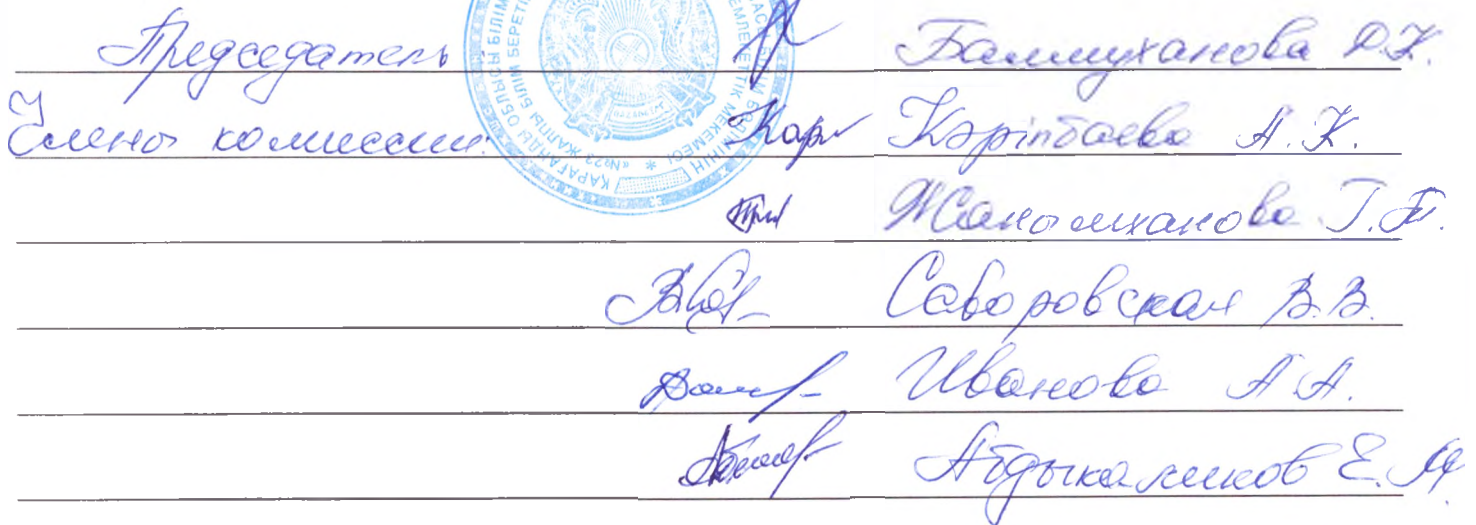 Председатель Балмуханова Р.К.
Члены комиссии: Кәріпбаева А.К.
Жанымханова Г.Т.
Саворовская В.В.
Иванова А.А.
Абдыкаликов Е.М.
ҚАРАҒАНДЫ ОБЛЫСЫ БІЛІМ
«№73 ЖАЛПЫ БІЛІМ БЕРЕТІ
МЕКЕМЕСІ